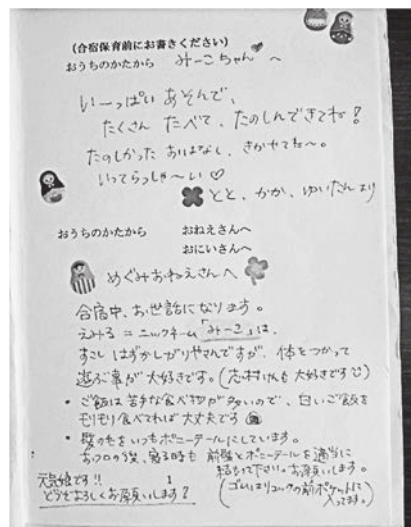 (合宿保育前にお書きください)
おうちのかたから みーこちゃん へ
いーっぱい あそんで、
たくさん たべて、たのしんできてね!
たのしかった おはなし、きかせてね〜。
いってらっしゃ〜い♡
とと、かか、ゆいたんより
おうちのかたから おねえさんへ
おにいさんへ
めぐみおねえさんへ
合宿中、お世話になります。
えみる=ニックネーム「みーこ」は、
すこし はずかしがりやさんですが、体をつかって
遊ぶ事が大好きです。(志村けんも大好きです)
・ご飯は苦手な食べ物が多いので、白いご飯を
モリモリ食べてれば大丈夫です
・髪の毛をいつもポニーテールにしています。
おフロの後、寝る時も 前髪とポニーテールを適当に
結わって下さい。お願いします。
(ゴムはリュックの前ポケットに
入ってます。)
元気娘です!!
どうぞよろしくお願いします?
1